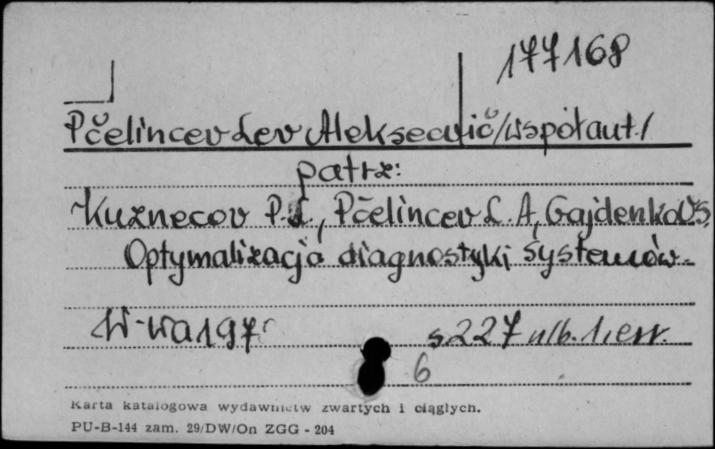 177168
Pčelincev Lev Alekseevič/współaut./
patrz:
Kuznecov P.I., Pčelincev L.A, Gajdenko V.S.
Optymalizacja diagnostyki systemów.
W-wa 197
s 227 nlb. 1, err.
6
Karta katalogowa wydawnictw zwartych i ciągłych.
PU-B-144 zam. 29/DW/On ZGG - 204